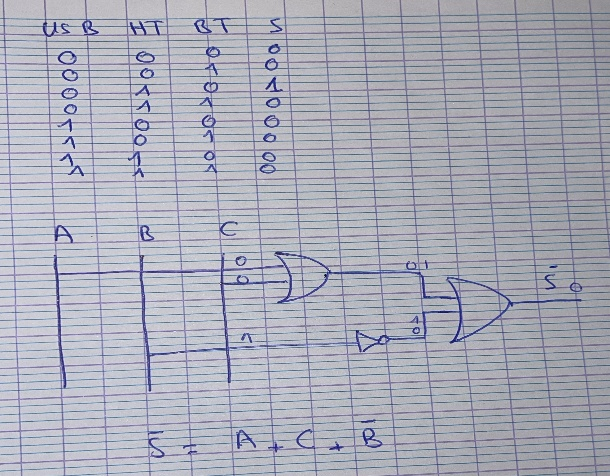 USB HT BT S
0 0 0 0
0 0 1 0
0 1 0 1
0 1 1 0
1 0 0 0
1 0 1 0
1 1 0 0
1 1 1 0
A B C
0
0
0 1
S̅ 0
1
1
0
S̅ = A + C + B̅